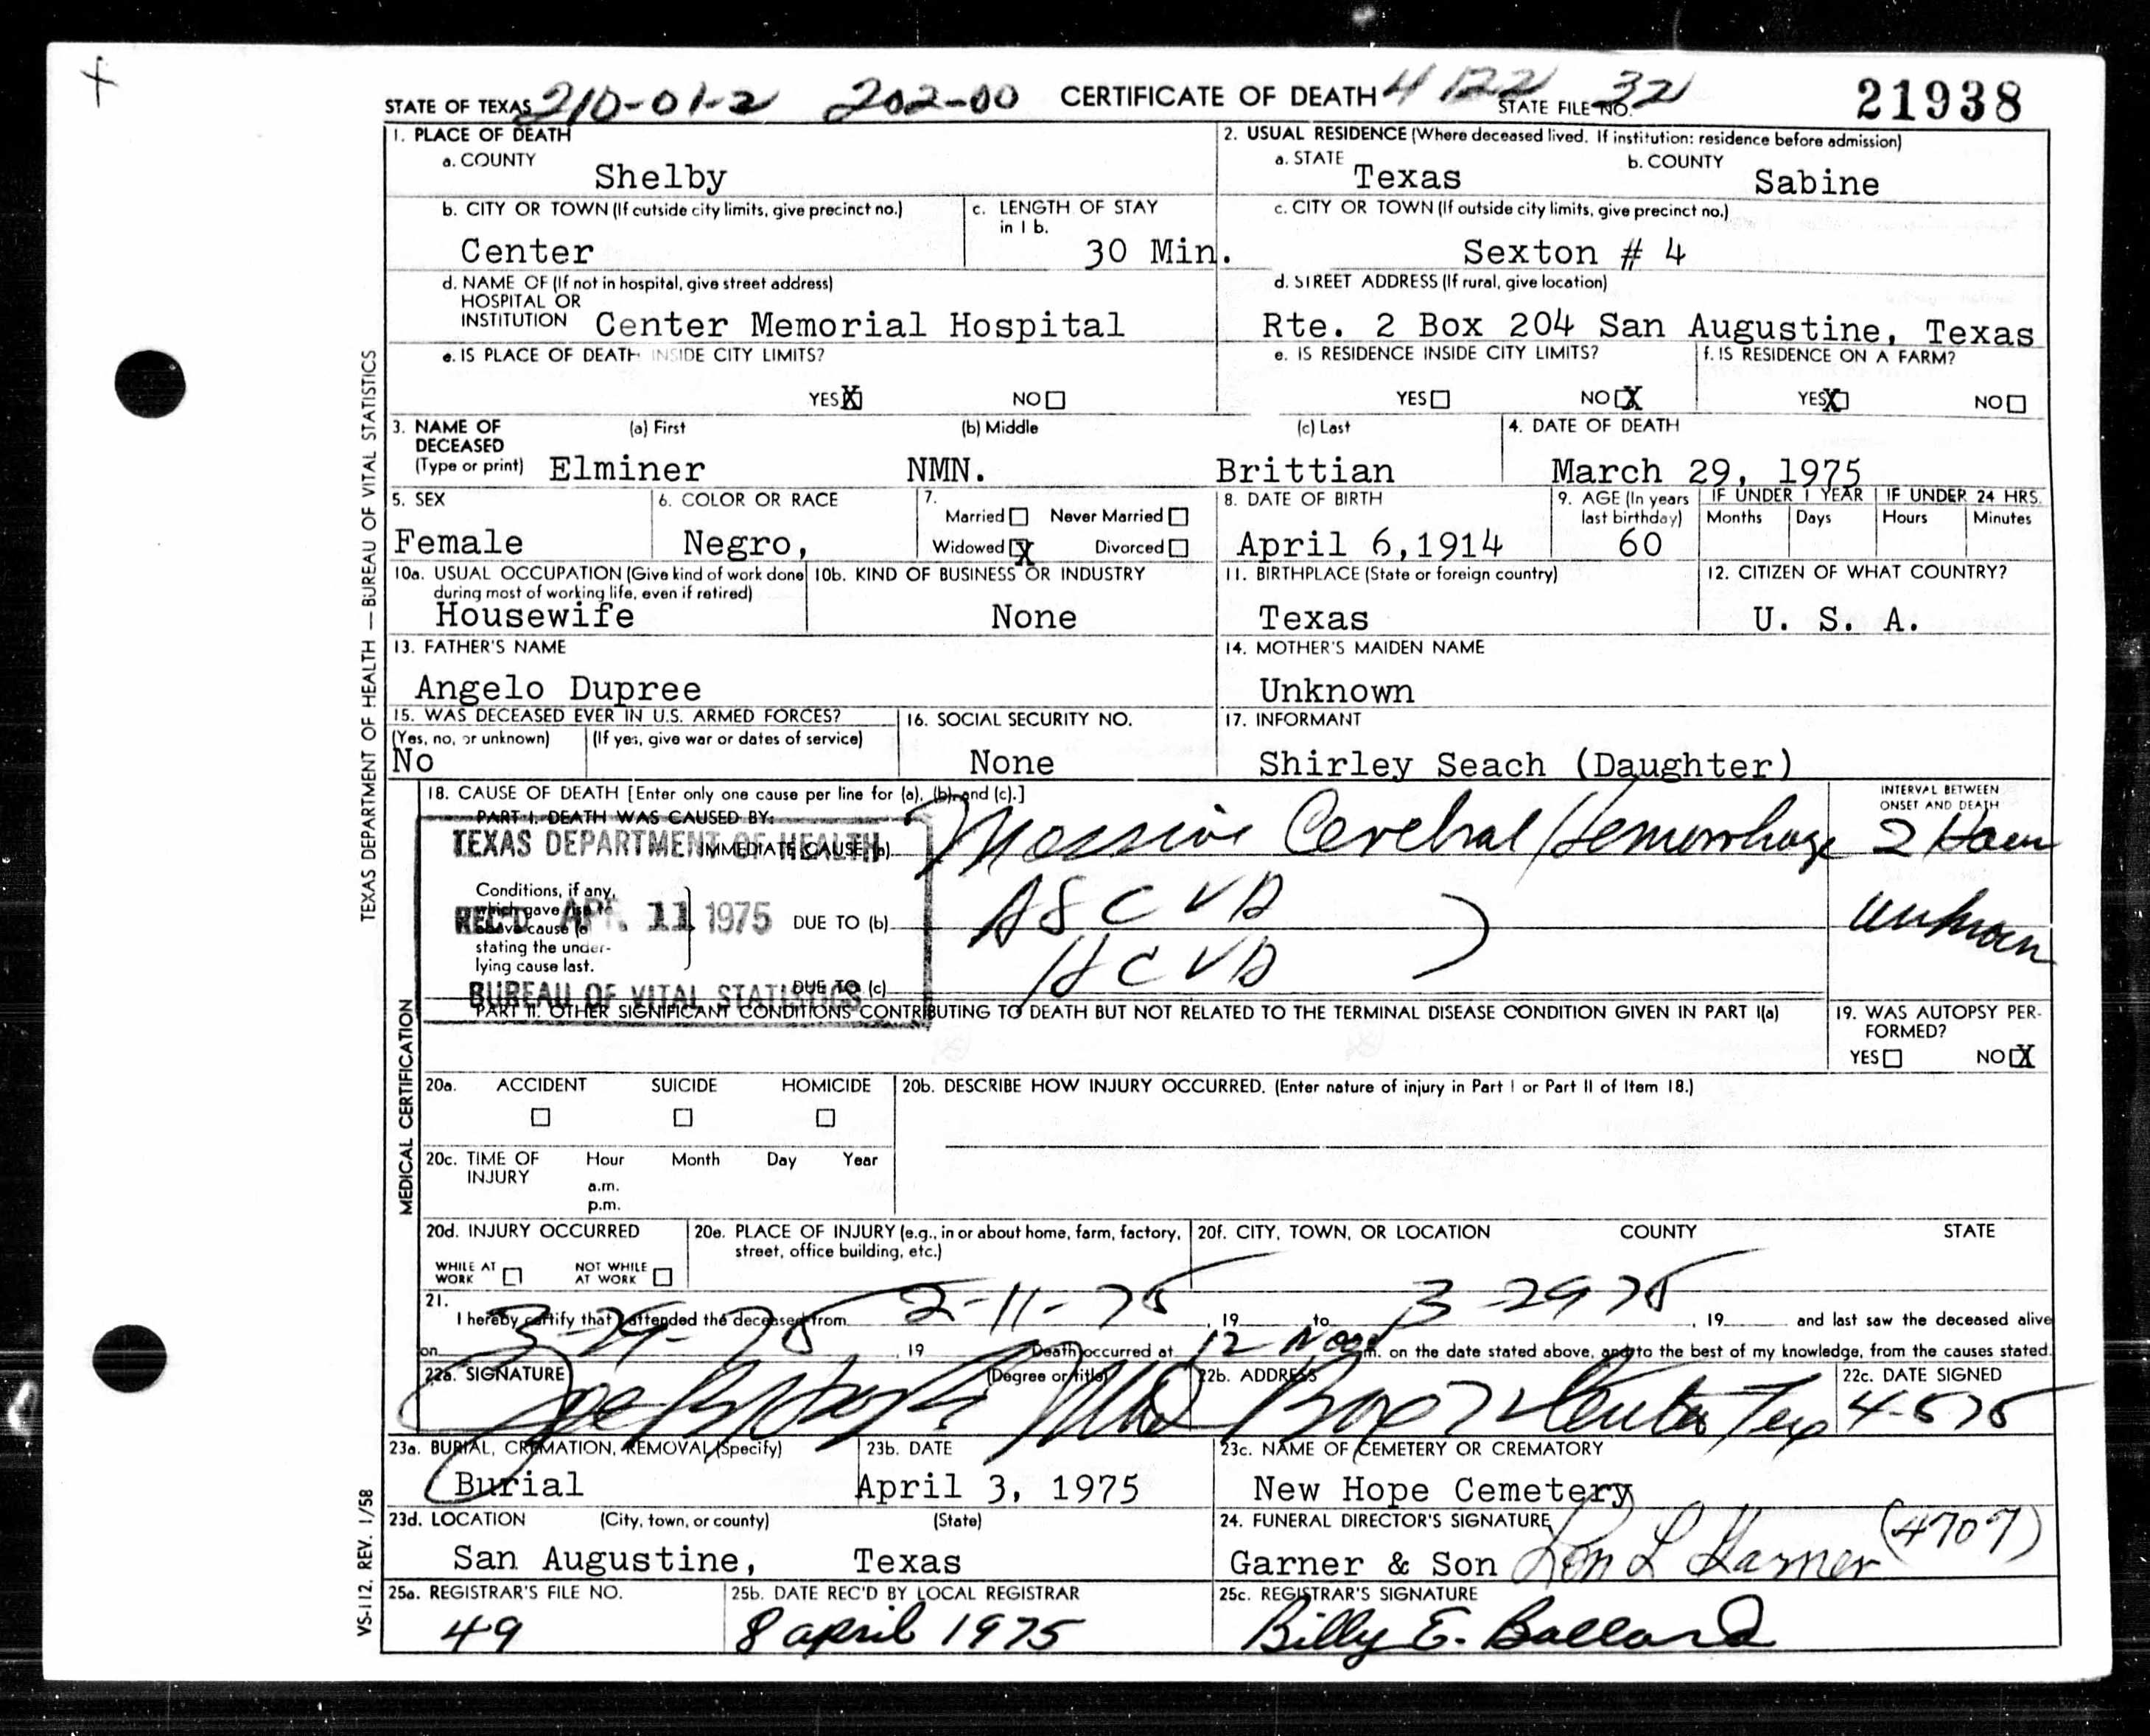 STATE OF TEXAS 210-01-2 202-00 CERTIFICATE OF DEATH 4 122 STATE FILE NO. 32 21938
1. PLACE OF DEATH
a. COUNTY Shelby
2. USUAL RESIDENCE (Where deceased lived. If institution: residence before admission)
a. STATE Texas b. COUNTY Sabine
b. CITY OR TOWN (If outside city limits, give precinct no.) Center
c. LENGTH OF STAY in 1 b. 30 Min.
c. CITY OR TOWN (If outside city limits, give precinct no.) Sexton # 4
d. NAME OF (If not in hospital, give street address)
HOSPITAL OR
INSTITUTION Center Memorial Hospital
d. STREET ADDRESS (If rural, give location)
Rte. 2 Box 204 San Augustine, Texas
e. IS PLACE OF DEATH INSIDE CITY LIMITS?
YES X NO
e. IS RESIDENCE INSIDE CITY LIMITS?
YES NO X
f. IS RESIDENCE ON A FARM?
YES X NO
3. NAME OF DECEASED (Type or print)
(a) First Elminer (b) Middle NMN. (c) Last Brittian
4. DATE OF DEATH March 29, 1975
5. SEX Female
6. COLOR OR RACE Negro,
7. Married Never Married
Widowed X Divorced
8. DATE OF BIRTH April 6,1914
9. AGE (In years last birthday) 60
IF UNDER 1 YEAR Months Days
IF UNDER 24 HRS. Hours Minutes
10a. USUAL OCCUPATION (Give kind of work done during most of working life, even if retired)
Housewife
10b. KIND OF BUSINESS OR INDUSTRY
None
11. BIRTHPLACE (State or foreign country)
Texas
12. CITIZEN OF WHAT COUNTRY?
U. S. A.
13. FATHER'S NAME
Angelo Dupree
14. MOTHER'S MAIDEN NAME
Unknown
15. WAS DECEASED EVER IN U.S. ARMED FORCES?
(Yes, no, or unknown) (If yes, give war or dates of service)
No
16. SOCIAL SECURITY NO.
None
17. INFORMANT
Shirley Seach (Daughter)
18. CAUSE OF DEATH [Enter only one cause per line for (a), (b), and (c).]
PART I. DEATH WAS CAUSED BY:
IMMEDIATE CAUSE (a) Massive Cerebral Hemorrhage
INTERVAL BETWEEN ONSET AND DEATH
2 Hour
Conditions, if any, which gave rise to above cause (a stating the under-lying cause last.
DUE TO (b) ASCVD
unknown
DUE TO (c) HCVD
TEXAS DEPARTMENT OF HEALTH
REC'D APR. 11 1975
BUREAU OF VITAL STATISTICS
PART II. OTHER SIGNIFICANT CONDITIONS CONTRIBUTING TO DEATH BUT NOT RELATED TO THE TERMINAL DISEASE CONDITION GIVEN IN PART I(a)
19. WAS AUTOPSY PER-FORMED?
YES NO X
20a. ACCIDENT SUICIDE HOMICIDE
20b. DESCRIBE HOW INJURY OCCURRED. (Enter nature of injury in Part I or Part II of Item 18.)
20c. TIME OF INJURY Hour Month Day Year
a.m.
p.m.
20d. INJURY OCCURRED
WHILE AT WORK NOT WHILE AT WORK
20e. PLACE OF INJURY (e.g., in or about home, farm, factory, street, office building, etc.)
20f. CITY, TOWN, OR LOCATION COUNTY STATE
21. I hereby certify that I attended the deceased from 2-11-75, 19 to 3-29 75, 19 and last saw the deceased alive
on 3-29-75, 19 Death occurred at 12 Noon m. on the date stated above, and to the best of my knowledge, from the causes stated.
22a. SIGNATURE (Degree or title) MD
22b. ADDRESS Center Tex
22c. DATE SIGNED 4-5 75
23a. BURIAL, CREMATION, REMOVAL (Specify)
Burial
23b. DATE
April 3, 1975
23c. NAME OF CEMETERY OR CREMATORY
New Hope Cemetery
23d. LOCATION (City, town, or county) (State)
San Augustine, Texas
24. FUNERAL DIRECTOR'S SIGNATURE
Garner & Son Lon L Garner (4707)
25a. REGISTRAR'S FILE NO.
49
25b. DATE REC'D BY LOCAL REGISTRAR
8 april 1975
25c. REGISTRAR'S SIGNATURE
Billy E. Ballard
TEXAS DEPARTMENT OF HEALTH — BUREAU OF VITAL STATISTICS
MEDICAL CERTIFICATION
VS-112, REV. 1/58